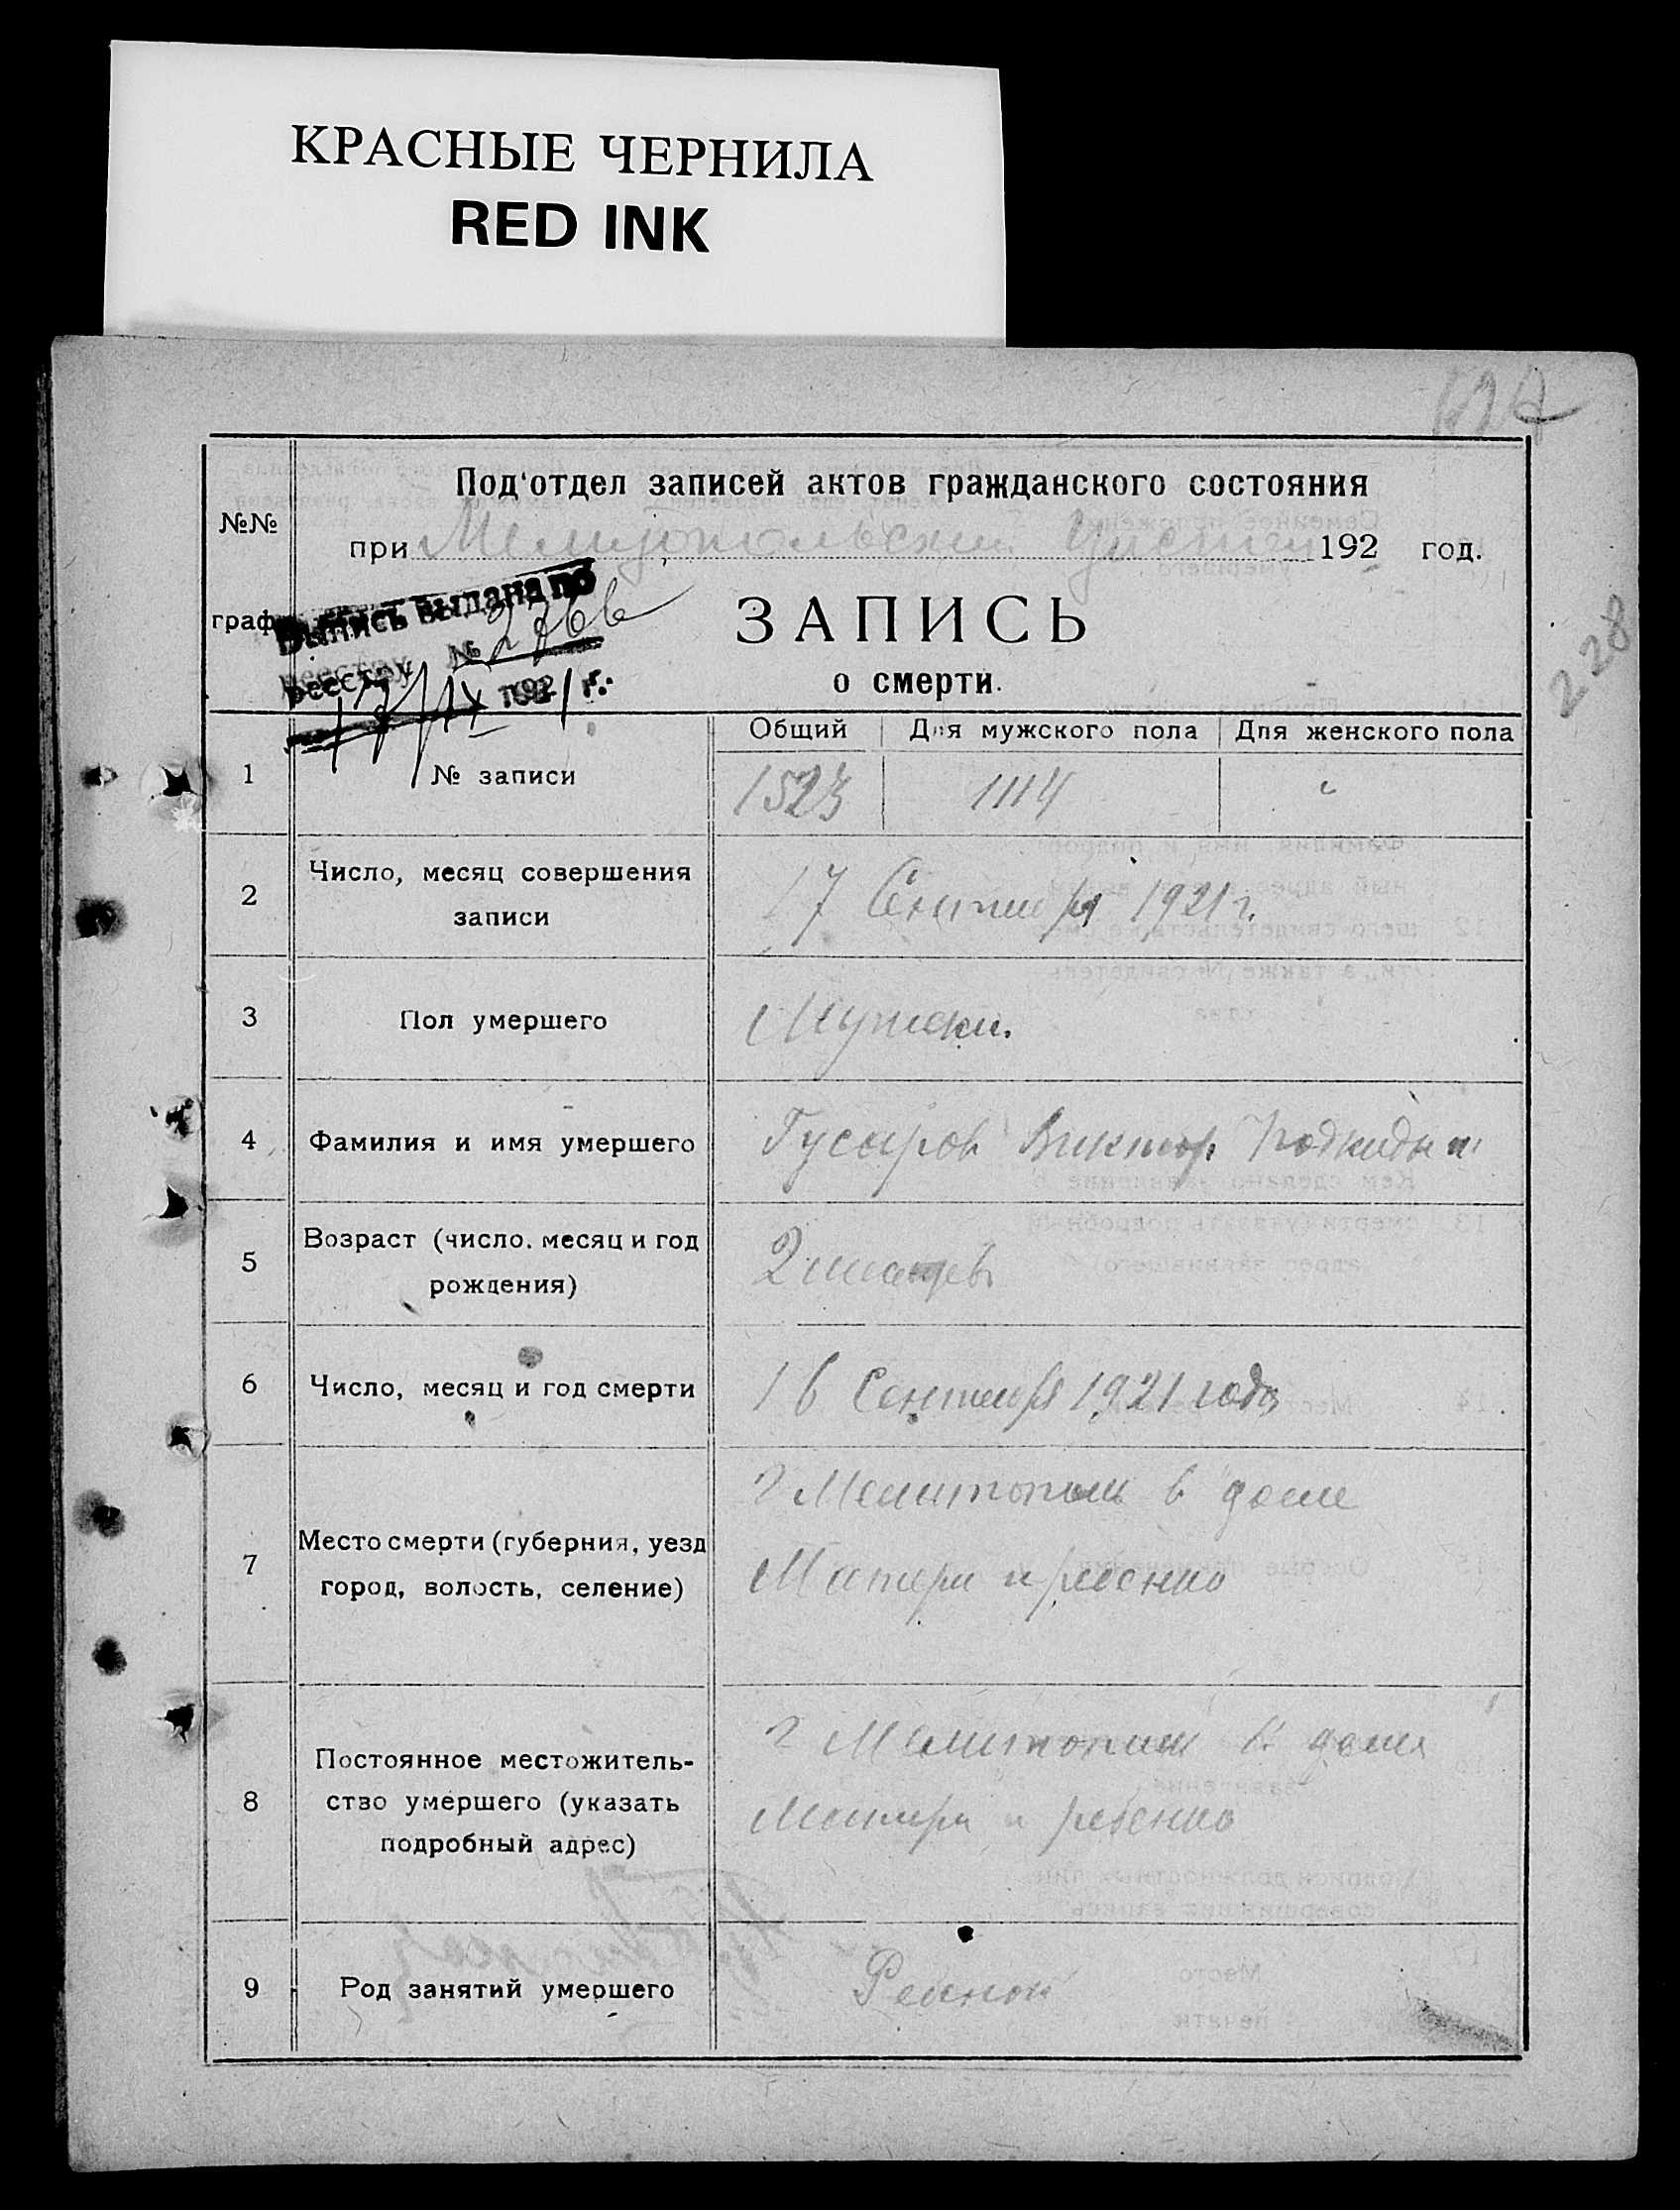 КРАСНЫЕ ЧЕРНИЛА
RED INK
Под'отдел записей актов гражданского состояния
№№
при Мелитопольском 192 год.
граф
Выпись выдана по
реестру №
192 г.
ЗАПИСЬ
о смерти.
Общий Для мужского пола Для женского пола
1 № записи 1523 1114 "
2 Число, месяц совершения
записи 17 Сентября 1921 г.
3 Пол умершего Мужск.
4 Фамилия и имя умершего Гусаров Виктор Подкидыш
5 Возраст (число, месяц и год
рождения) 2 месяцев
6 Число, месяц и год смерти 16 Сентября 1921 года
7 Место смерти (губерния, уезд
город, волость, селение)
г Мелитополь в доме
Матери и ребенка
8 Постоянное местожитель-
ство умершего (указать
подробный адрес)
г Мелитополь в доме
Матери и ребенка
9 Род занятий умершего Ребенок
228